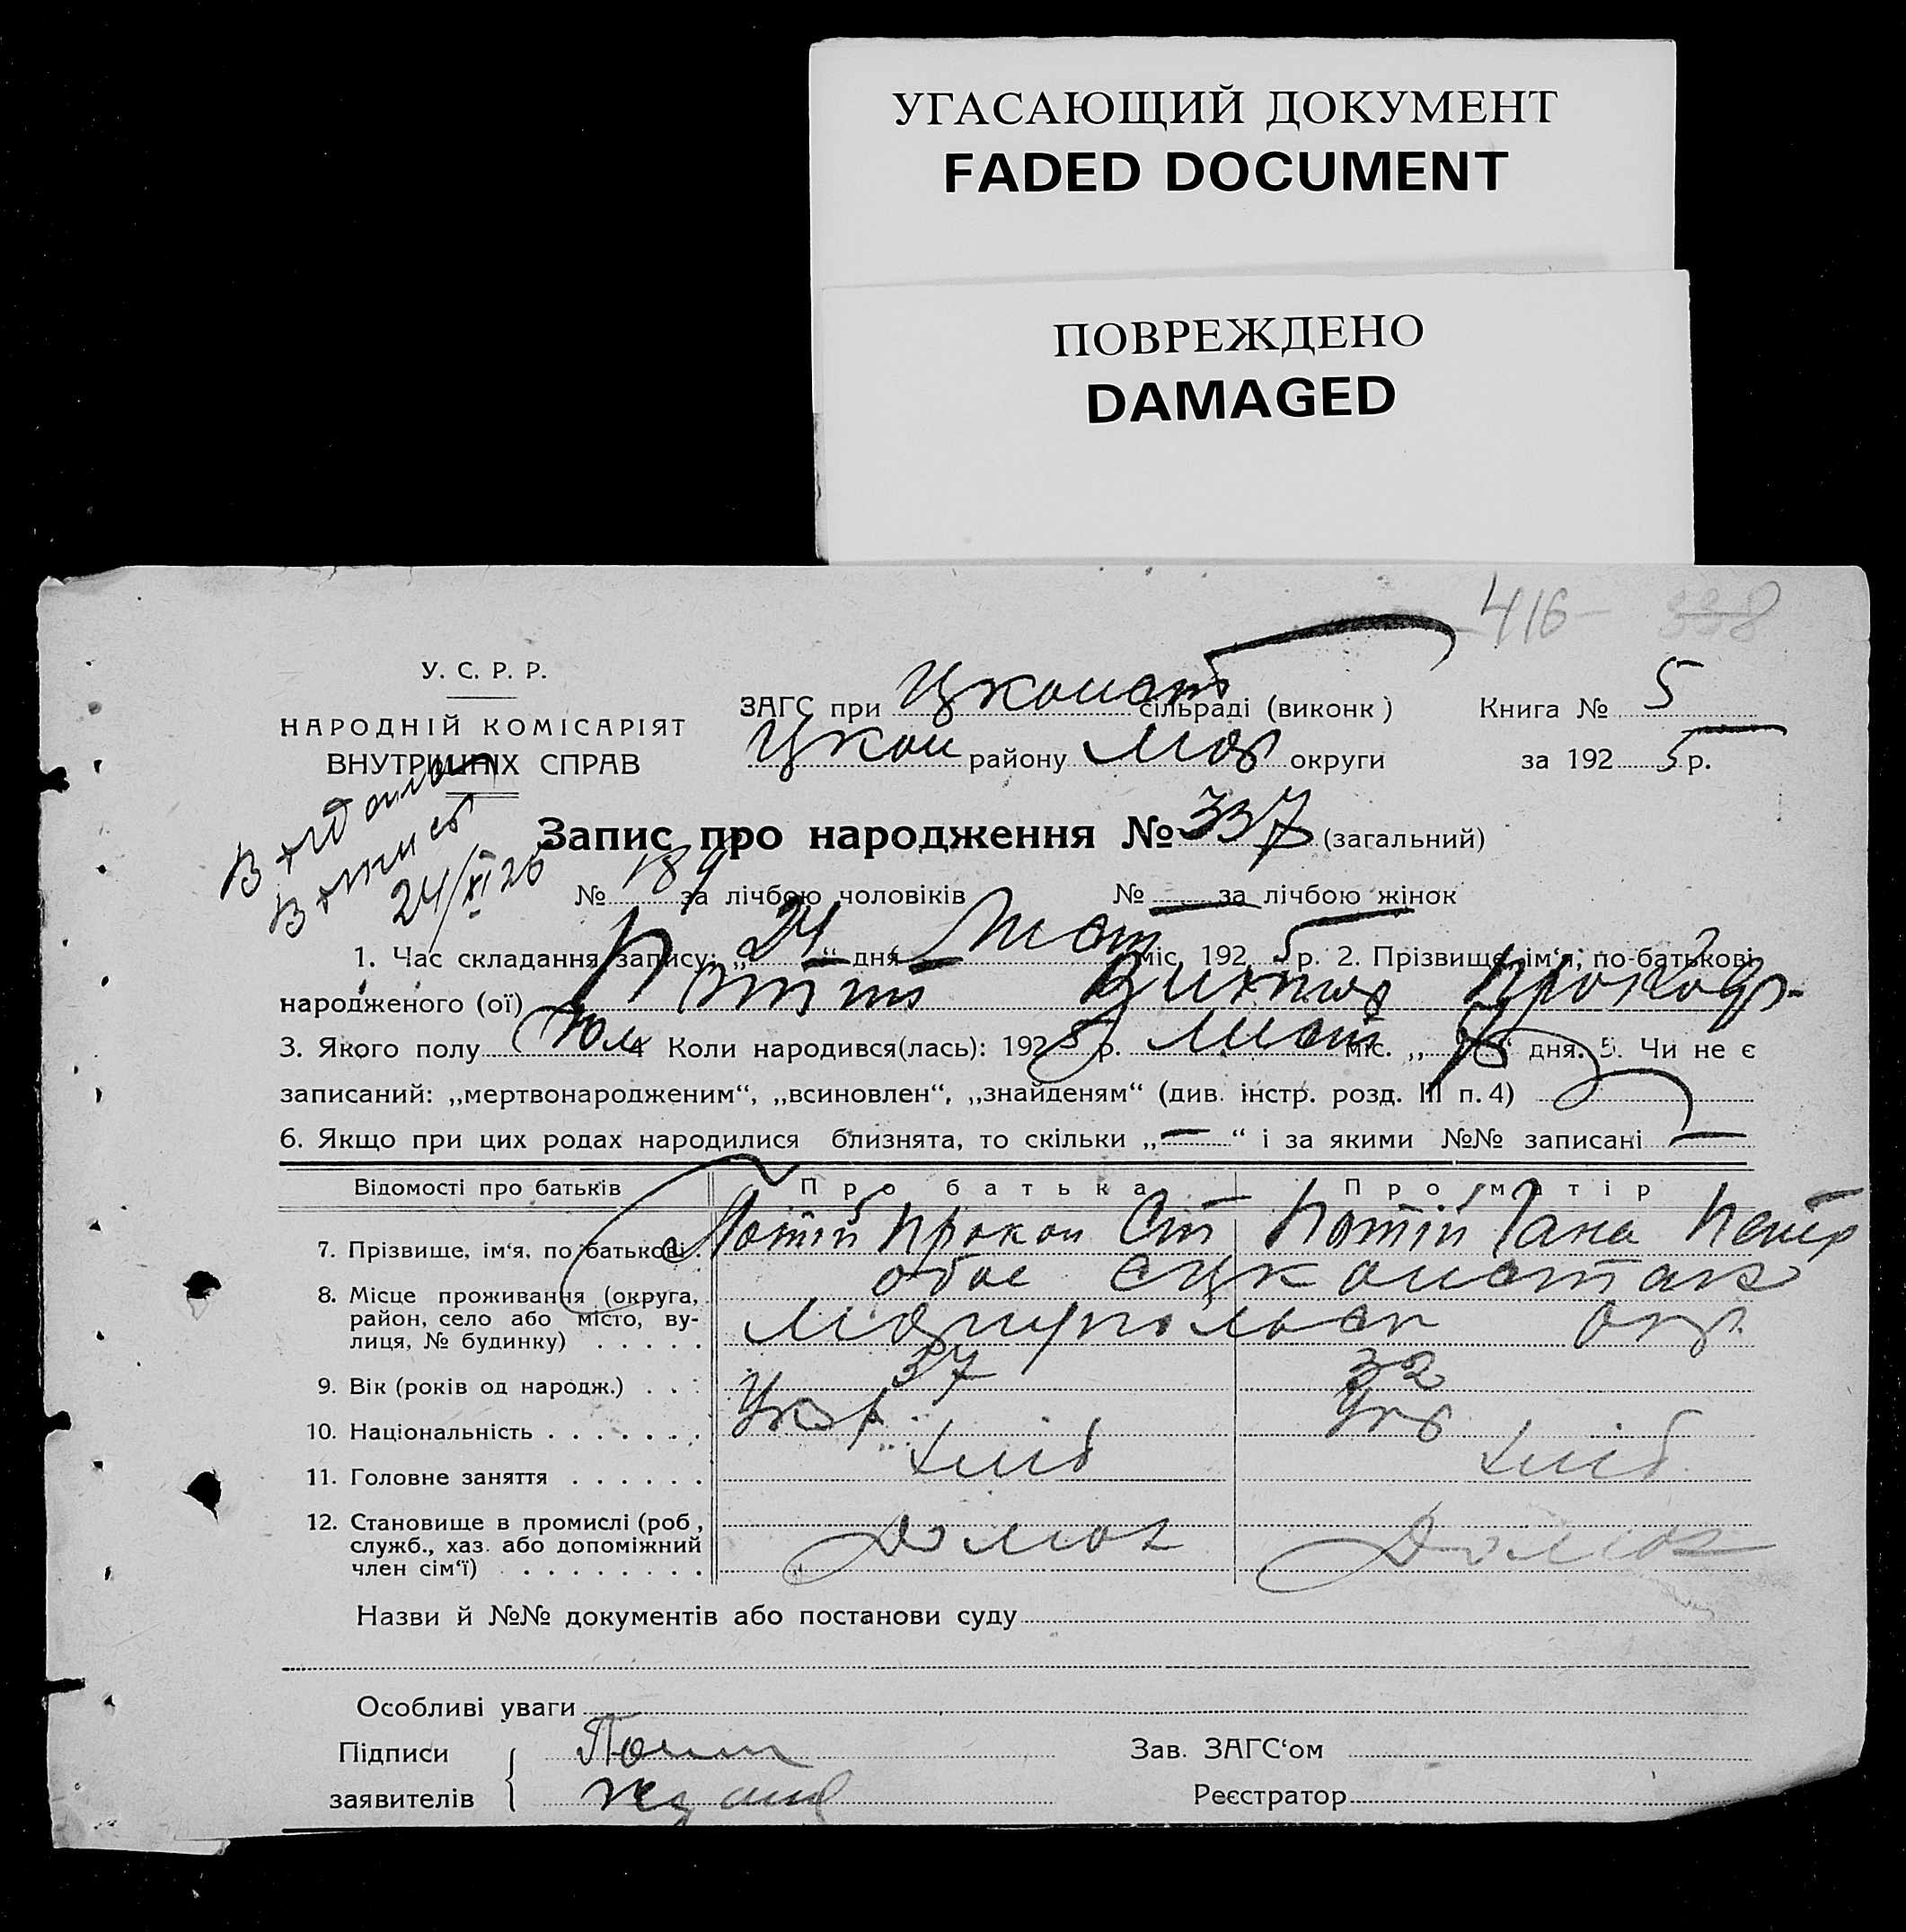 УГАСАЮЩИЙ ДОКУМЕНТ
FADED DOCUMENT
ПОВРЕЖДЕНО
DAMAGED
416 338
У. С. Р. Р.
НАРОДНІЙ КОМІСАРІЯТ
ВНУТРИШНІХ СПРАВ
ЗАГС при сільраді (виконк) Книга № 5
району Мар округи за 1925 р.
24/XI 25
Запис про народження № 337 (загальний)
№ 189 за лічбою чоловіків № — за лічбою жінок
1. Час складання запису: „24“ дня Лист міс. 1925 р. 2. Прізвище, ім‘я, по-батькові
народженого (ої) Потій Виктор Прокоф
3. Якого полу Чол 4 Коли народився(лась): 1925 р. Лист міс. „ “ дня. 5. Чи не є
записаний: „мертвонародженим“, „всиновлен“, „знайденям“ (див. інстр. розд. III п. 4)
6. Якщо при цих родах народилися близнята, то скільки „—“ і за якими №№ записані —
Відомості про батьків Про батька Про матір
7. Прізвище, ім‘я, по батькові Потій Прокоп Ст Потій Гана Петр
8. Місце проживання (округа, район, село або місто, вулиця, № будинку) обое
Маріупольськ окр.
9. Вік (років од народж.) 37 32
10. Національність Укр Укр
11. Головне заняття Хліб Хліб
12. Становище в промислі (роб., служб., хаз. або допоміжний член сім‘ї) Домох Домох
Назви й №№ документів або постанови суду
Особливі уваги
Підписи заявителів
Зав. ЗАГС‘ом
Реєстратор